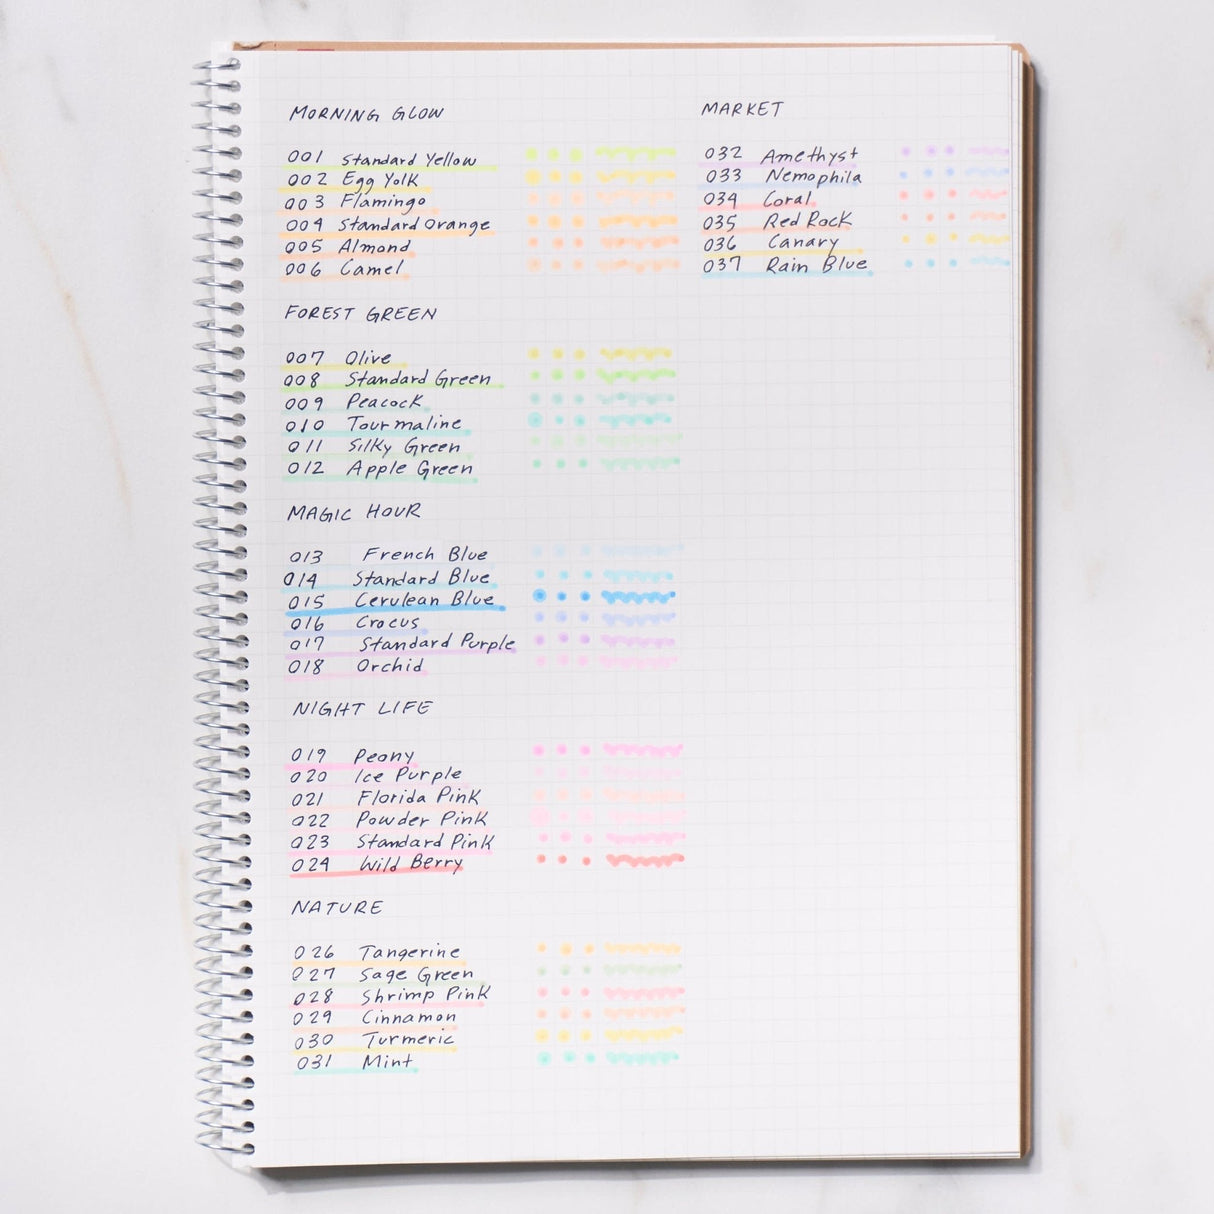 MORNING GLOW
001 Standard Yellow
002 Egg Yolk
003 Flamingo
004 Standard Orange
005 Almond
006 Camel
FOREST GREEN
007 Olive
008 Standard Green
009 Peacock
010 Tourmaline
011 Silky Green
012 Apple Green
MAGIC HOUR
013 French Blue
014 Standard Blue
015 Cerulean Blue
016 Crocus
017 Standard Purple
018 Orchid
NIGHT LIFE
019 Peony
020 Ice Purple
021 Florida Pink
022 Powder Pink
023 Standard Pink
024 Wild Berry
NATURE
026 Tangerine
027 Sage Green
028 Shrimp Pink
029 Cinnamon
030 Turmeric
031 Mint
MARKET
032 Amethyst
033 Nemophila
034 Coral
035 Red Rock
036 Canary
037 Rain Blue